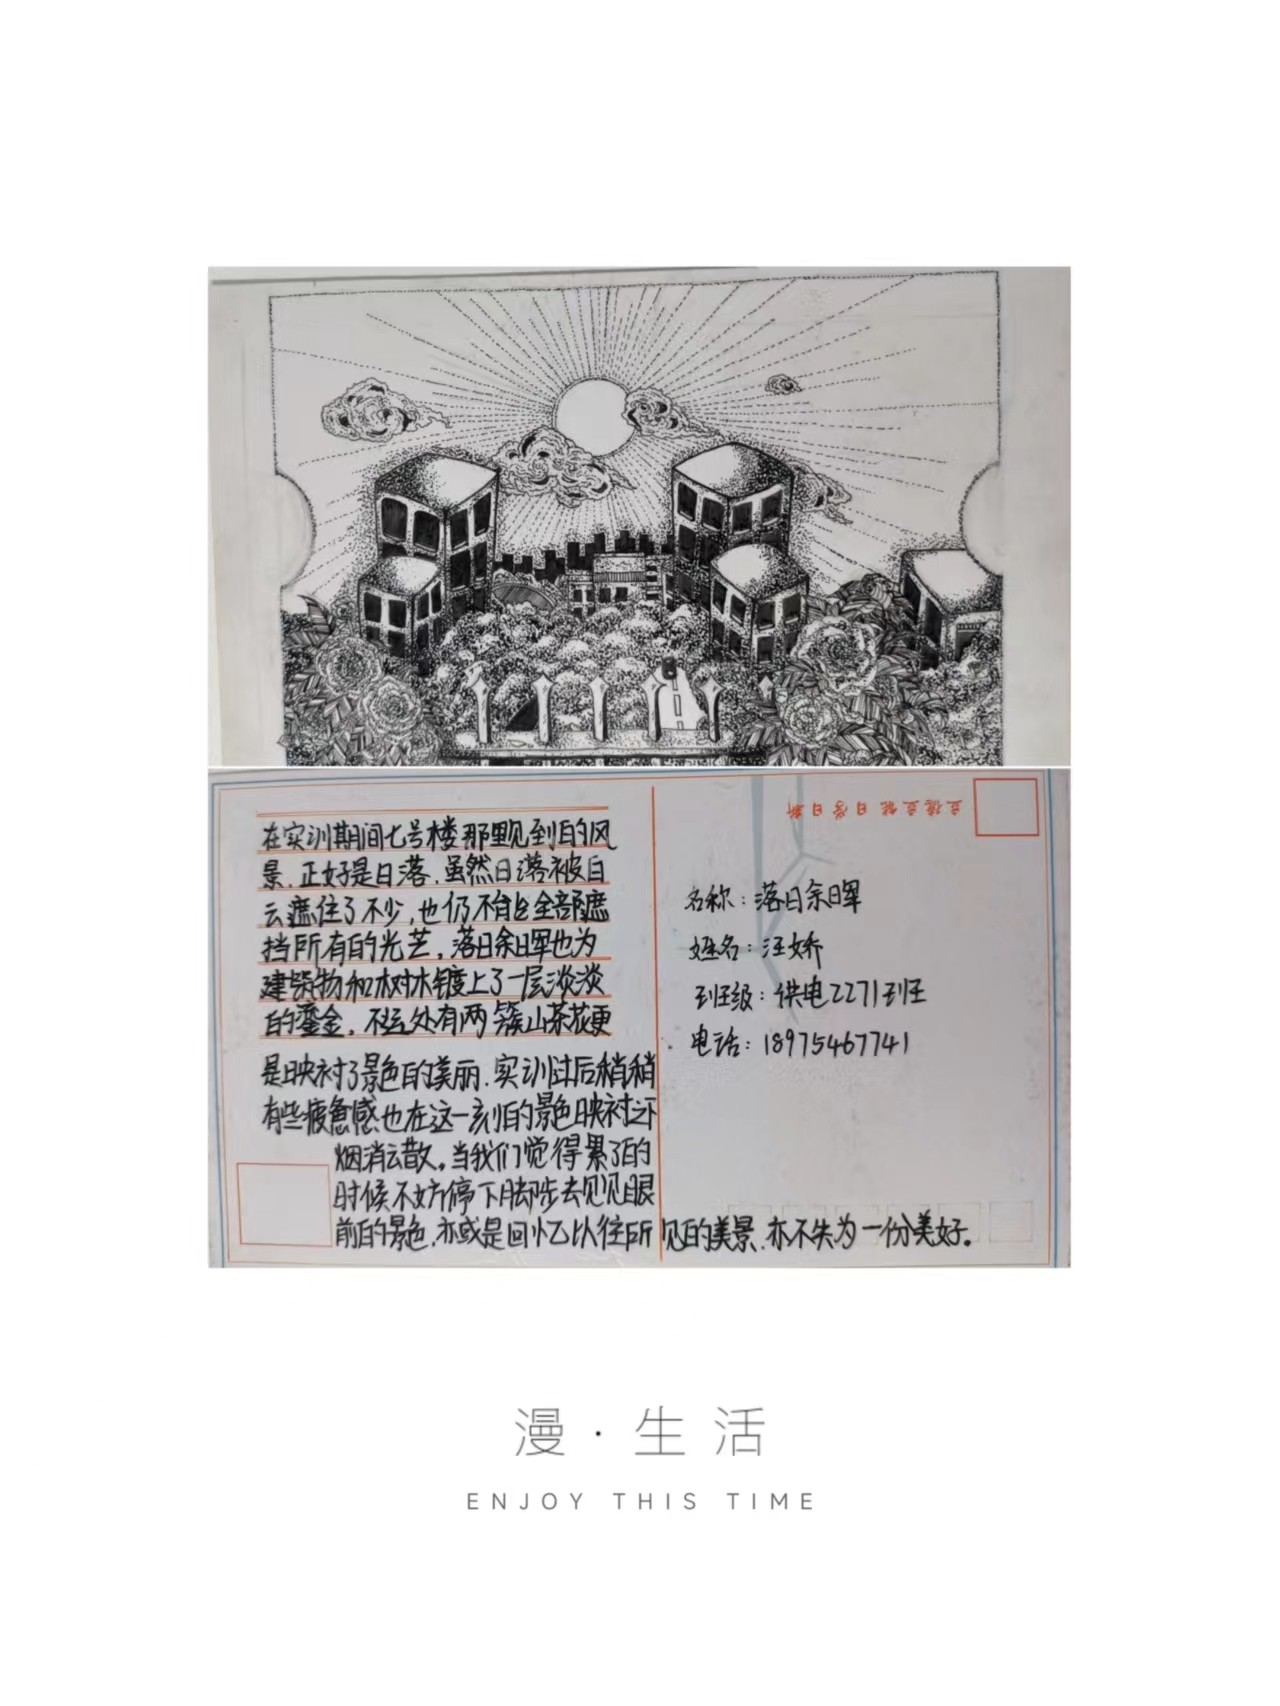 在实训期间七号楼那里见到的风
景.正好是日落.虽然日落被白
云遮住了不少,也仍不能全部遮
挡所有的光芒,落日余晖也为
建筑物和树木镀上了一层淡淡
的鎏金,不远处有两簇山茶花更
是映衬了景色的美丽.实训过后稍稍
有些疲惫感也在这一刻的景色映衬之下
烟消云散。当我们觉得累了的
时候不妨停下脚步去见见眼
前的景色.亦或是回忆以往所见的美景.亦不失为一份美好。
立德立能日学日新
名称:落日余晖
姓名:汪娇
班级:供电2271班
电话:18975467741
漫·生活
ENJOY THIS TIME